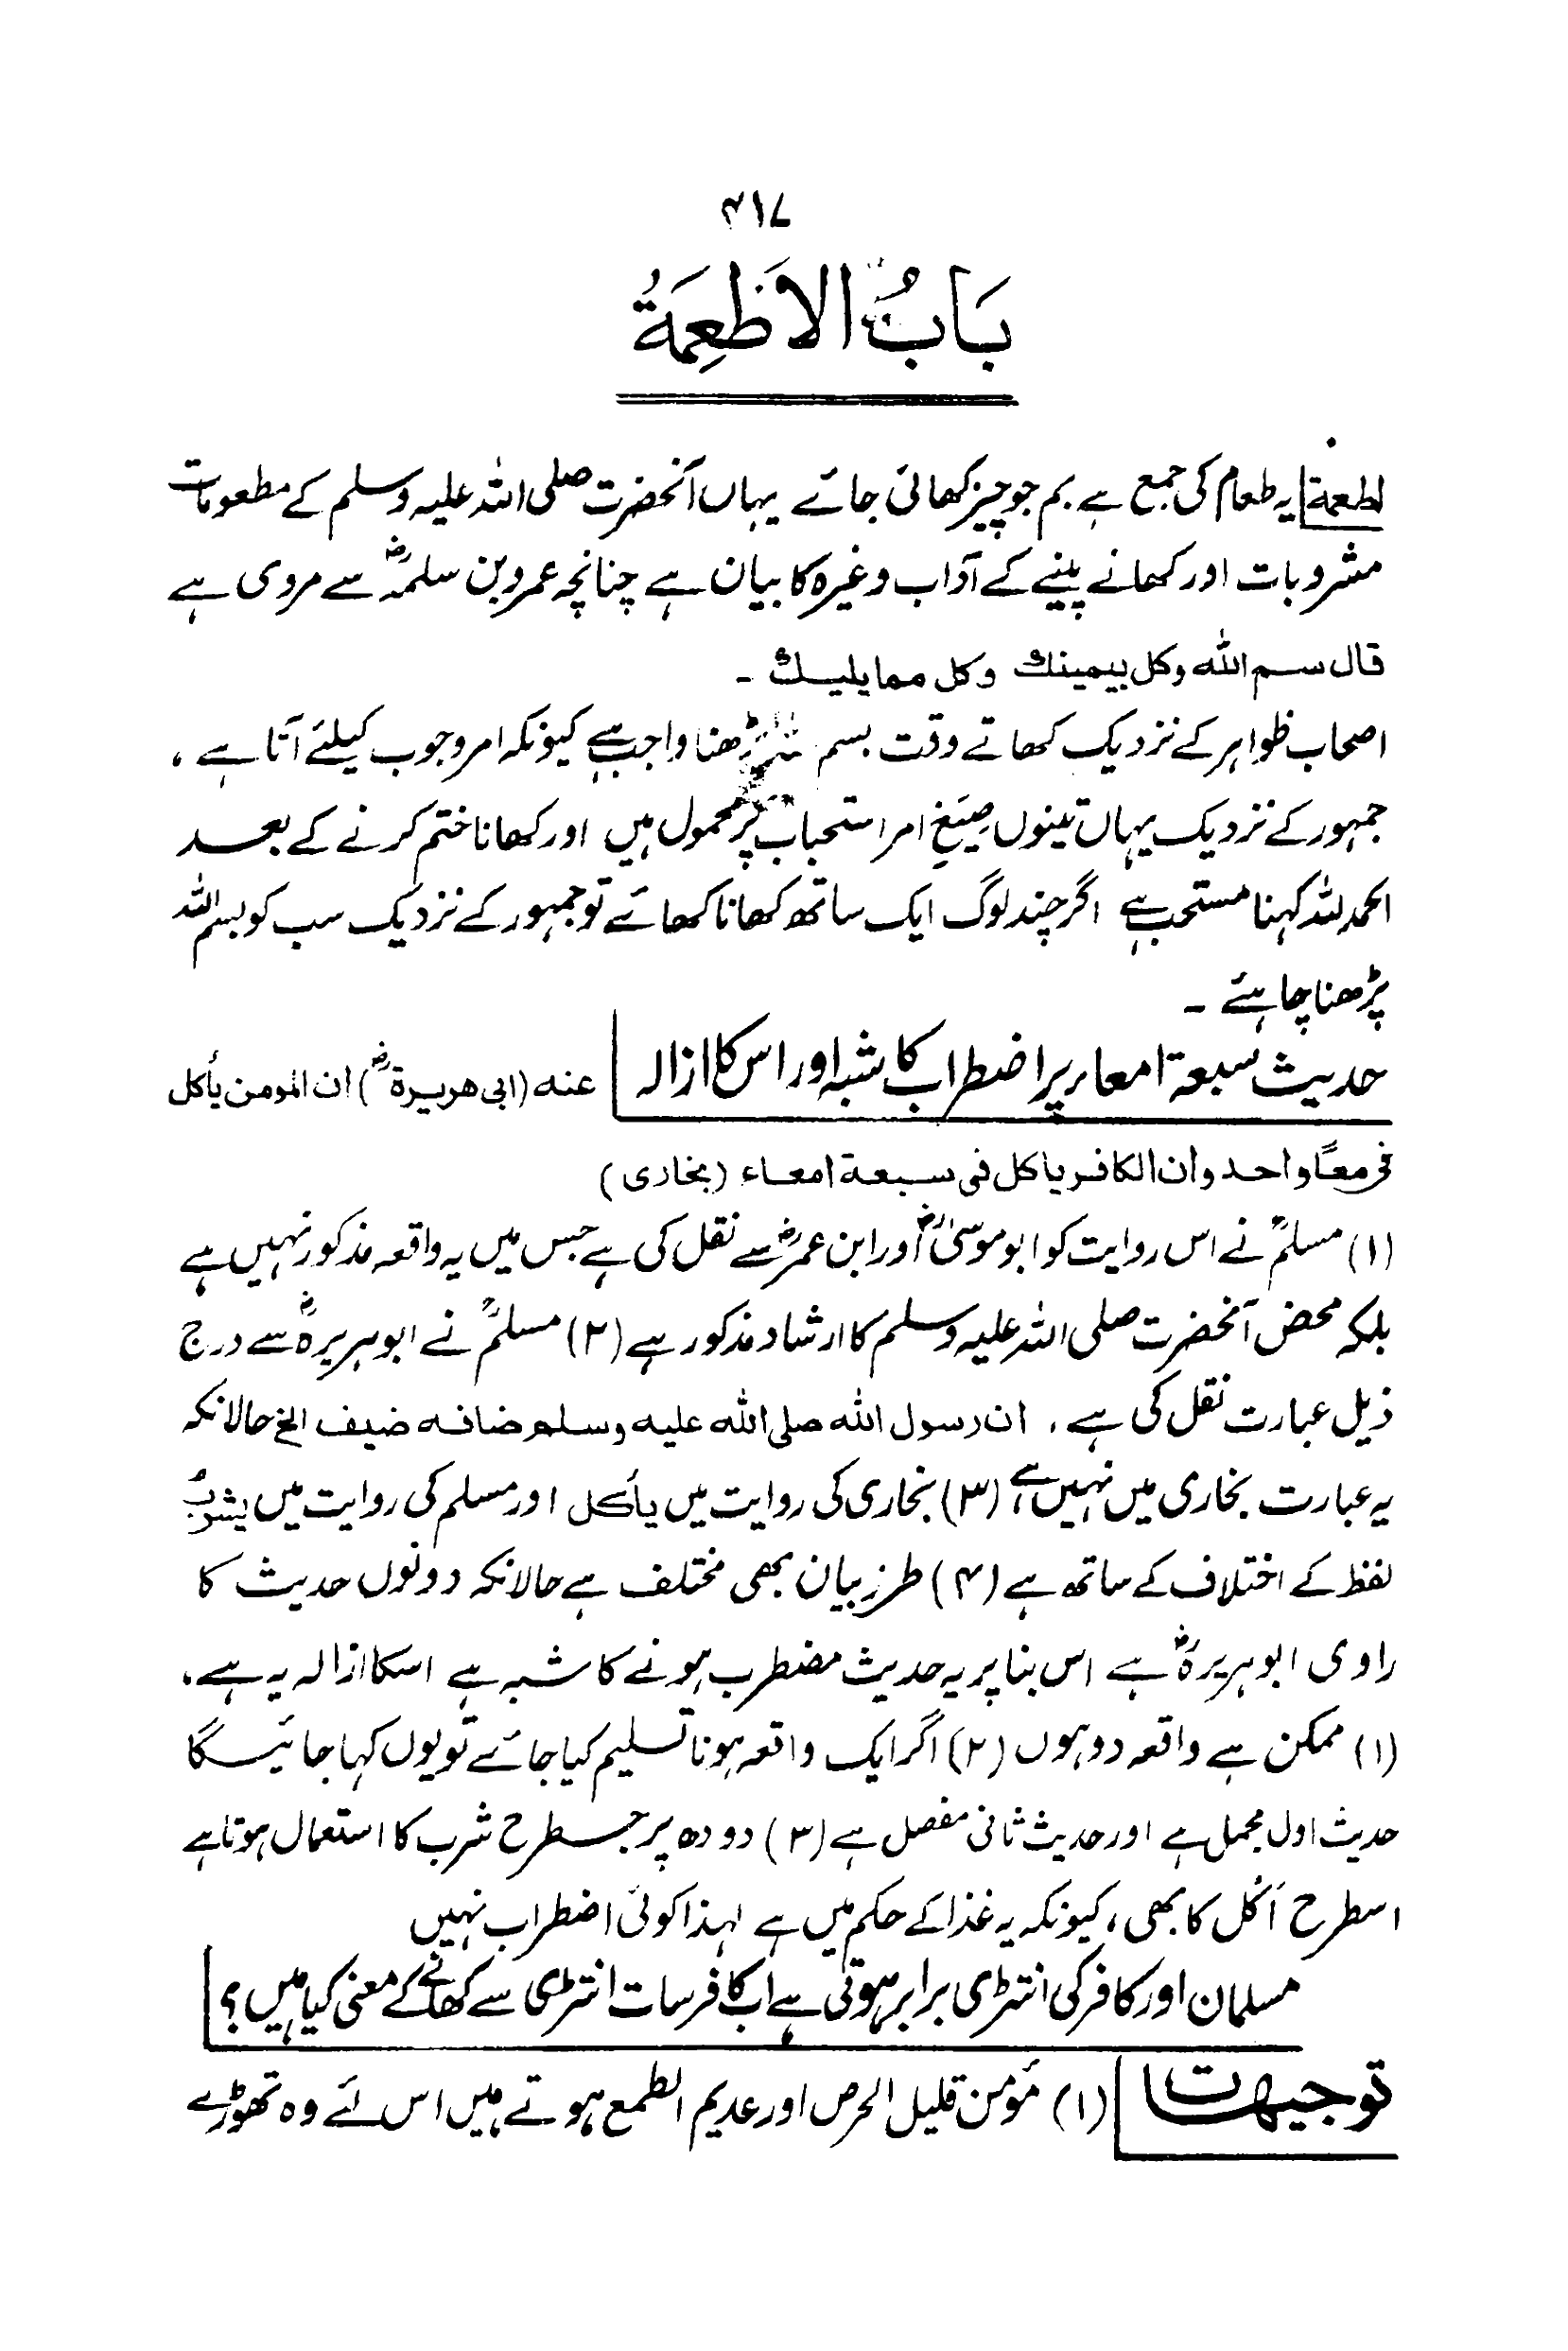 ۴۱۷
بَابُ الاَطْعِمَةُ
لطعمة یہ طعام کی جمع ہے بم جو چیز کھائی جائے یہاں آنحضرت صلی اللہ علیہ وسلم کے مطعومات
مشروبات اور کھانے پینے کے آداب وغیرہ کا بیان ہے چنانچہ عمرو بن سلمہؓ سے مروی ہے
قال سم اللّٰه وکل بیمینك وکل مما یلیك ۔
اصحاب ظواہر کے نزدیک کھاتے وقت بسم پڑھنا واجب ہے کیونکہ امر وجوب کیلئے آتا ہے ،
جمہور کے نزدیک یہاں تینوں صِیَغِ امر استحباب پر محمول ہیں اور کھانا ختم کرنے کے بعد
الحمد للہ کہنا مستحب ہے اگر چند لوگ ایک ساتھ کھانا کھائے تو جمہور کے نزدیک سب کو بسم اللہ
پڑھنا چاہئے ۔
حدیث سبعة امعاء پر اضطراب کا شبہ اور اس کا ازالہ عنه (ابی هریرة ؓ) ان المومن یأکل
فی معًا واحد وان الکافر یاکل فی سبعة امعاء (بخاری)
(۱) مسلمؒ نے اس روایت کو ابو موسیٰؓ اور ابن عمرؓ سے نقل کی ہے جس میں یہ واقعہ مذکور نہیں ہے
بلکہ محض آنحضرت صلی اللہ علیہ وسلم کا ارشاد مذکور ہے (۲) مسلمؒ نے ابو ہریرہؓ سے درج
ذیل عبارت نقل کی ہے ، ان رسول اللّٰه صلی اللّٰه علیه وسلم ضافه ضیف الخ حالانکہ
یہ عبارت بخاری میں نہیں ہے ، (۳) بخاری کی روایت میں یأکل اور مسلم کی روایت میں یشربُ
لفظ کے اختلاف کے ساتھ ہے (۴) طرز بیان بھی مختلف ہے حالانکہ دونوں حدیث کا
راوی ابو ہریرہؓ ہے اس بنا پر یہ حدیث مضطرب ہونے کا شبہ ہے اسکا ازالہ یہ ہے ،
(۱) ممکن ہے واقعہ دو ہوں (۲) اگر ایک واقعہ ہونا تسلیم کیا جائے تو یوں کہا جائیگا
حدیث اول مجمل ہے اور حدیث ثانی مفصل ہے (۳) دودھ پر جسطرح شرب کا استعمال ہوتا ہے
اسطرح اَکل کا بھی ، کیونکہ یہ غذا کے حکم میں ہے لہذا کوئی اضطراب نہیں
مسلمان اور کافر کی انتڑی برابر ہوتی ہے اب کافر سات انتڑی سے کھانے کے معنی کیا ہیں ؟
توجیهات (۱) مؤمن قلیل الحرص اور عدیم الطمع ہوتے ہیں اس لئے وہ تھوڑے